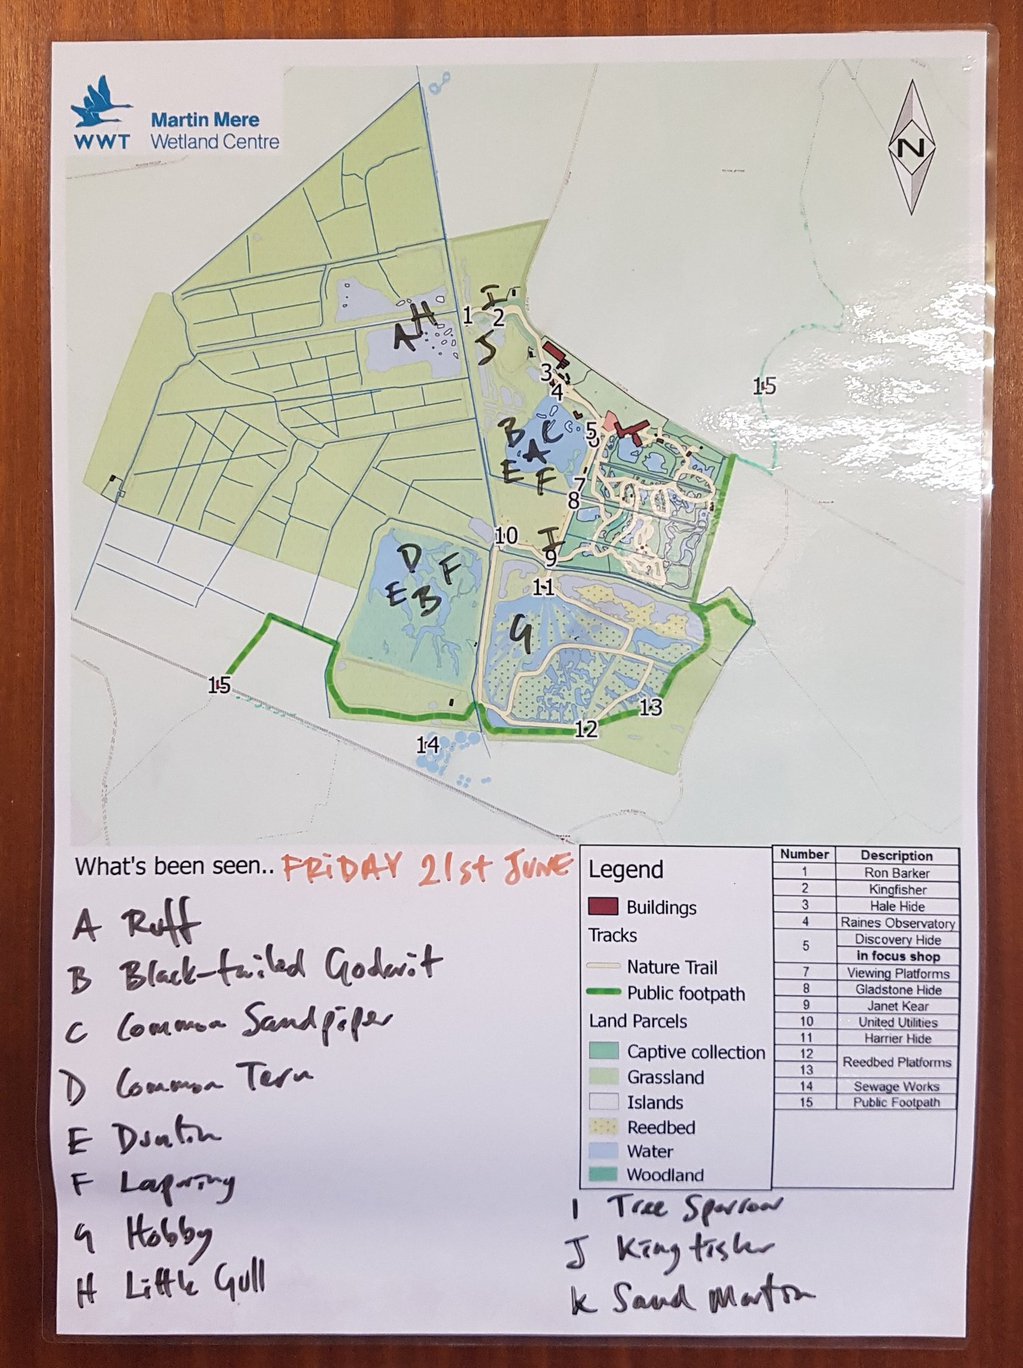 WWT
Martin Mere
Wetland Centre
N
I
1
2
H
A
J
3
4
15
B
C
5
A
E
F
7
8
10
I
9
D
F
11
E
B
G
15
13
12
14
What's been seen.. FRIDAY 21st JUNE
A Ruff
B Black-tailed Godwit
C Common Sandpiper
D Common Tern
E Dunlin
F Lapwing
G Hobby
H Little Gull
Legend
Buildings
Tracks
Nature Trail
Public footpath
Land Parcels
Captive collection
Grassland
Islands
Reedbed
Water
Woodland
Number Description
1 Ron Barker
2 Kingfisher
3 Hale Hide
4 Raines Observatory
5 Discovery Hide
in focus shop
7 Viewing Platforms
8 Gladstone Hide
9 Janet Kear
10 United Utilities
11 Harrier Hide
12 Reedbed Platforms
13
14 Sewage Works
15 Public Footpath
I Tree Sparrow
J Kingfisher
K Sand Martin